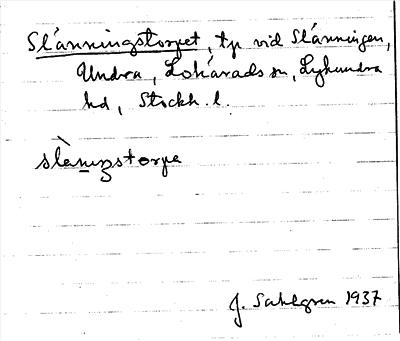 Slänningstorpet, tp vid Slänningen,
Undra, Lohärads sn, Lyhundra
hd, Stockh. l.
slèni̲ŋstorpe
J. Sahlgren 1937